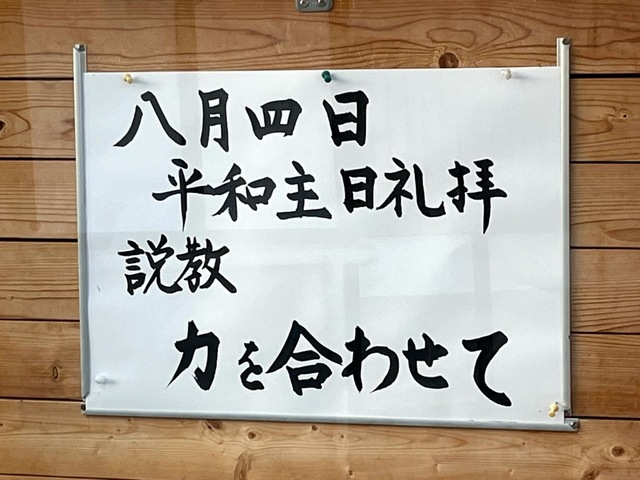 八月四日
平和主日礼拝
説教
力を合わせて